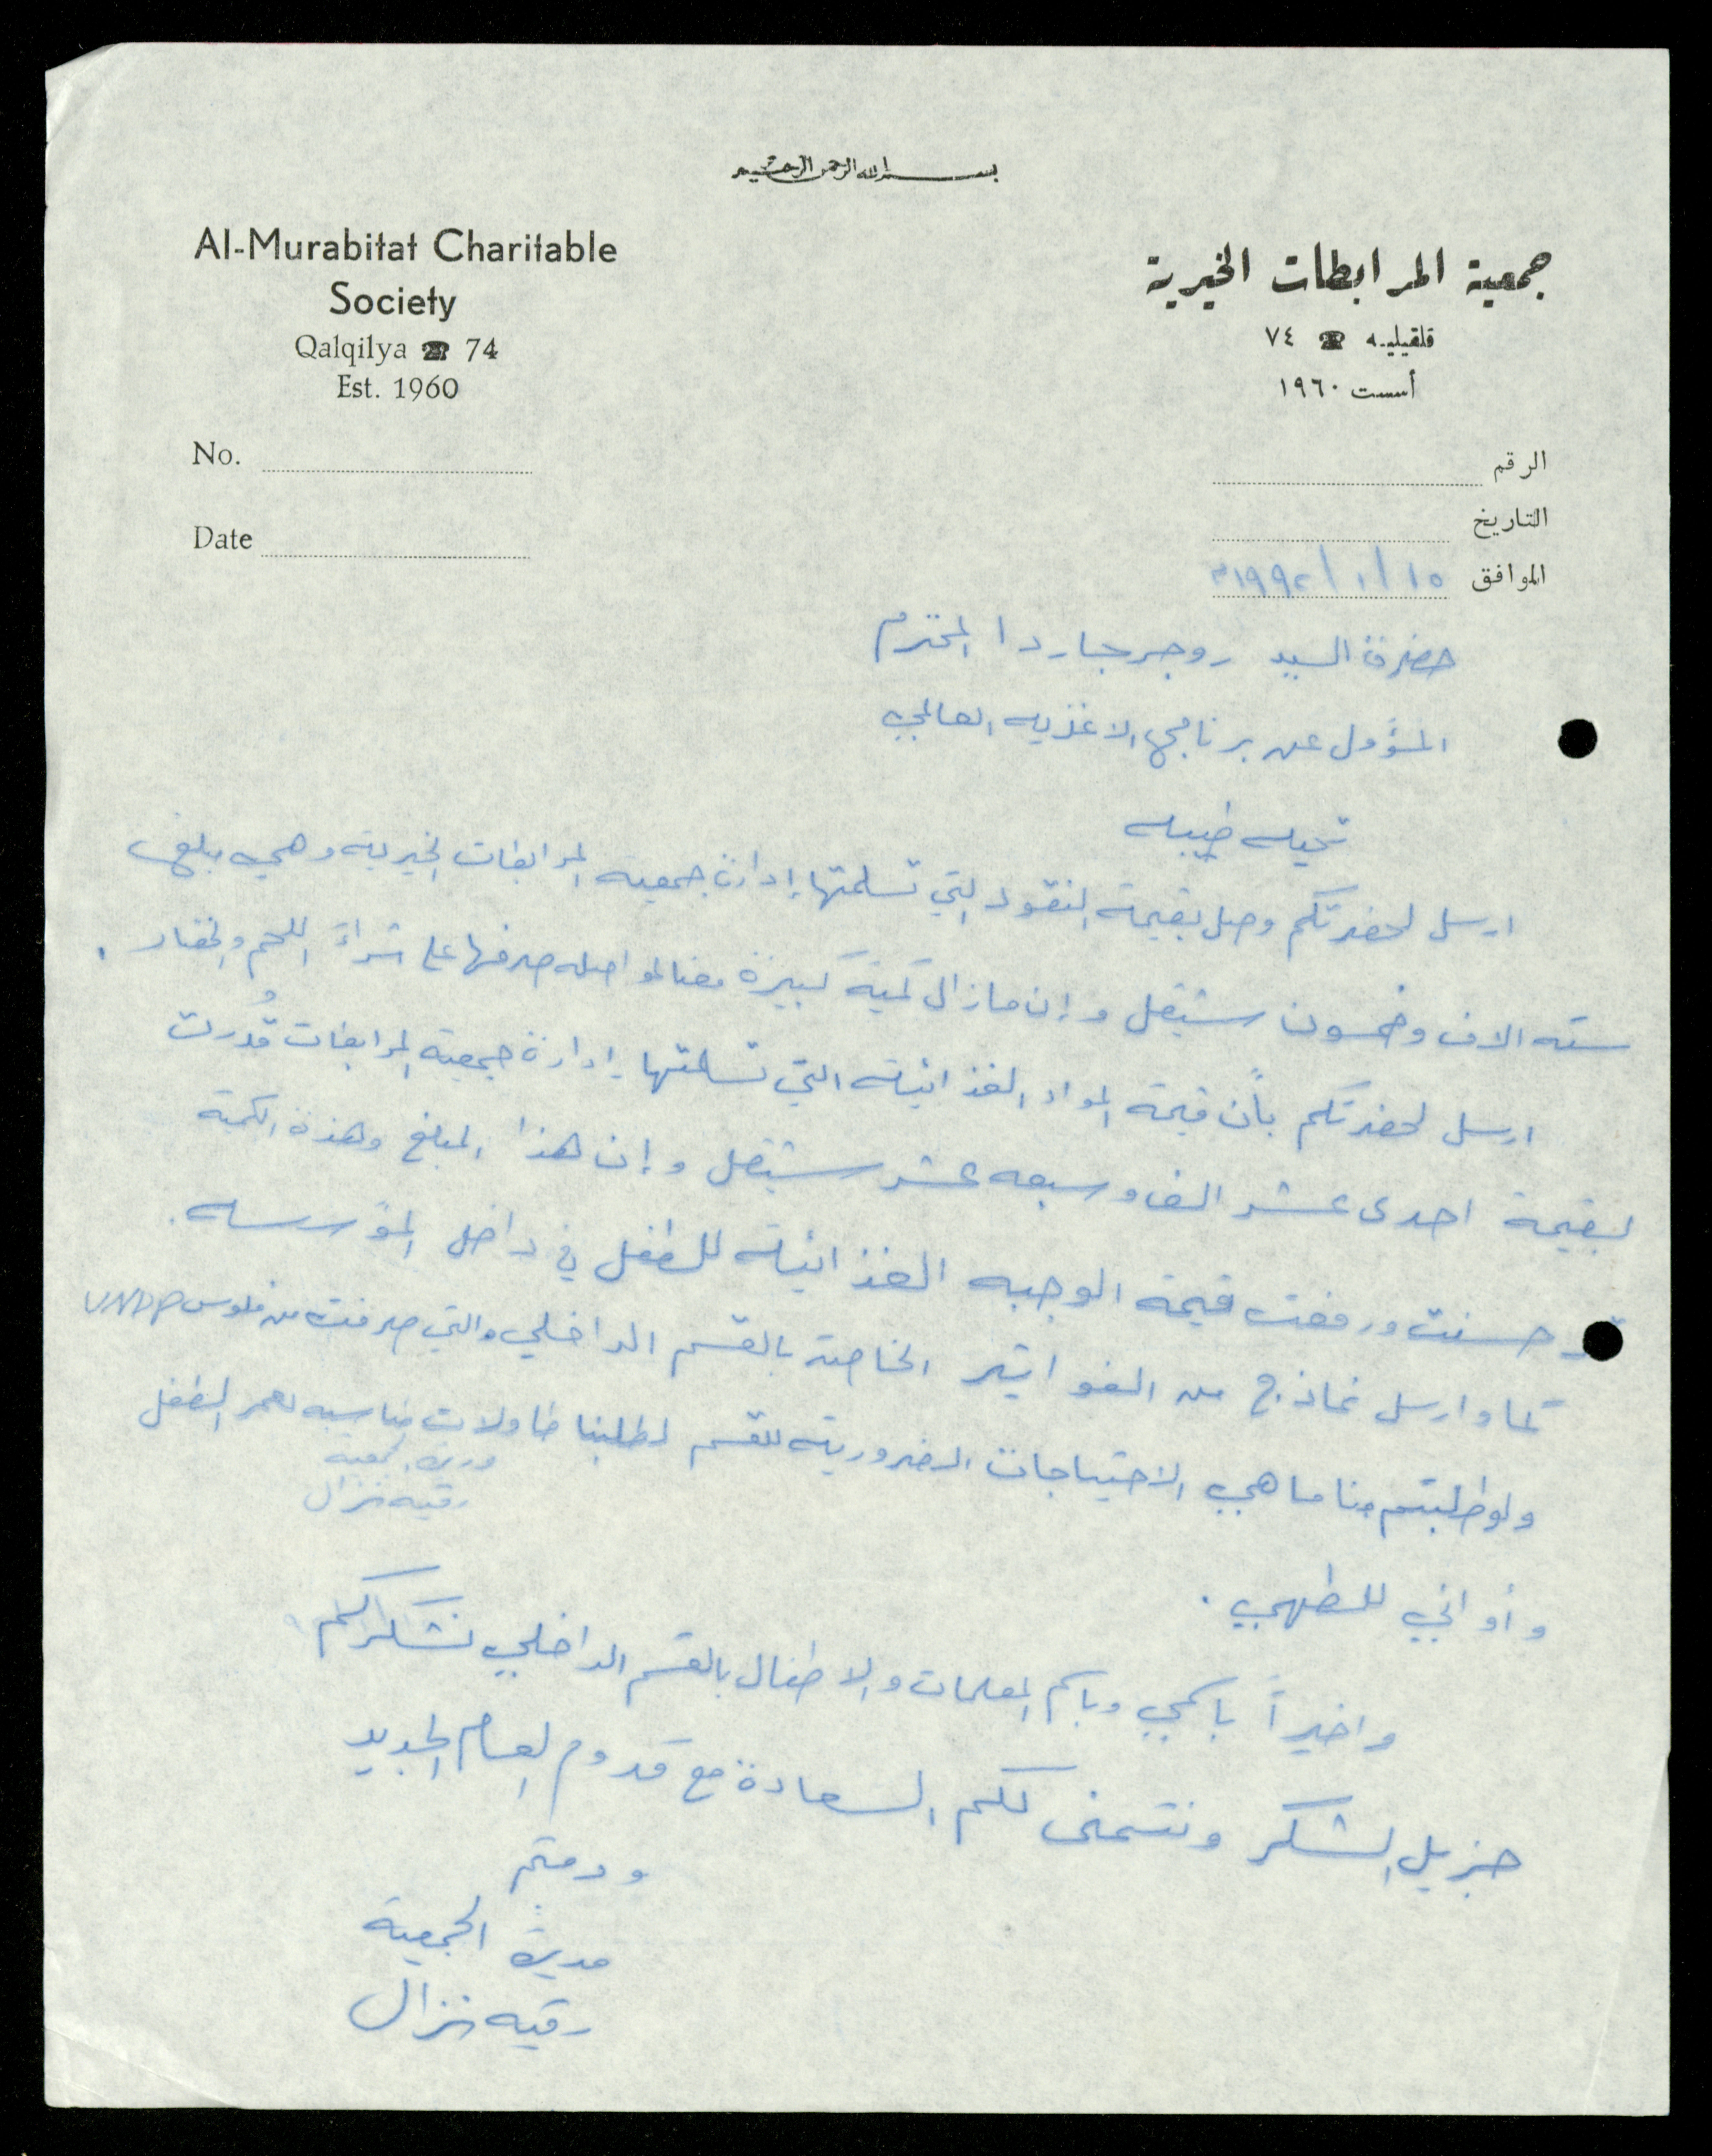 بسم الله الرحمن الرحيم
Al-Murabitat Charitable
Society
Qalqilya ☎ 74
Est. 1960
No.
Date
جمعية المرابطات الخيرية
قلقيليه ☎ ٧٤
أسست ١٩٦٠
الرقم
التاريخ
الموافق ١٥ / ١ / ١٩٩٢م
حضرة السيد روجر جاردا المحترم
المسؤول عن برنامج الاغذيه العالمي
تحيه طيبه
ارسل لحضرتكم وصل بقيمة النقود التي تسلمتها إدارة جمعية المرابطات الخيرية وهي بلغ
سته الاف وخمسون شيقل وإن مازال كمية كبيرة معنا لمواصله صرفها على شراء اللحم والخضار .
ارسل لحضرتكم بأن قيمة المواد الغذائيه التي تسلمتها إدارة جمعية المرابطات قُدرت
بقيمة احدى عشر الف وسبعه عشر شيقل وإن هذا المبلغ وهذة الكمية
قد حسنت ورفعت قيمة الوجبه الغذائيه للطفل في داخل المؤسسه .
كما وارسل نماذج من الفواتير الخاصة بالقسم الداخلي والتي صرفت من فلوس UNDP
ولو طلبتم منا ما هي الاحتياجات الضرورية للقسم لطلبنا طاولات مناسبه لعمر الطفل
مديرة الجمعية
رقيه نزال
وأواني للطهي .
واخيراً باسمي وباسم المعلمات والاطفال بالقسم الداخلي نشكركم
جزيل الشكر ونتمنى لكم السعادة مع قدوم العام الجديد
ودمتم
مديرة الجمعية
رقيه نزال